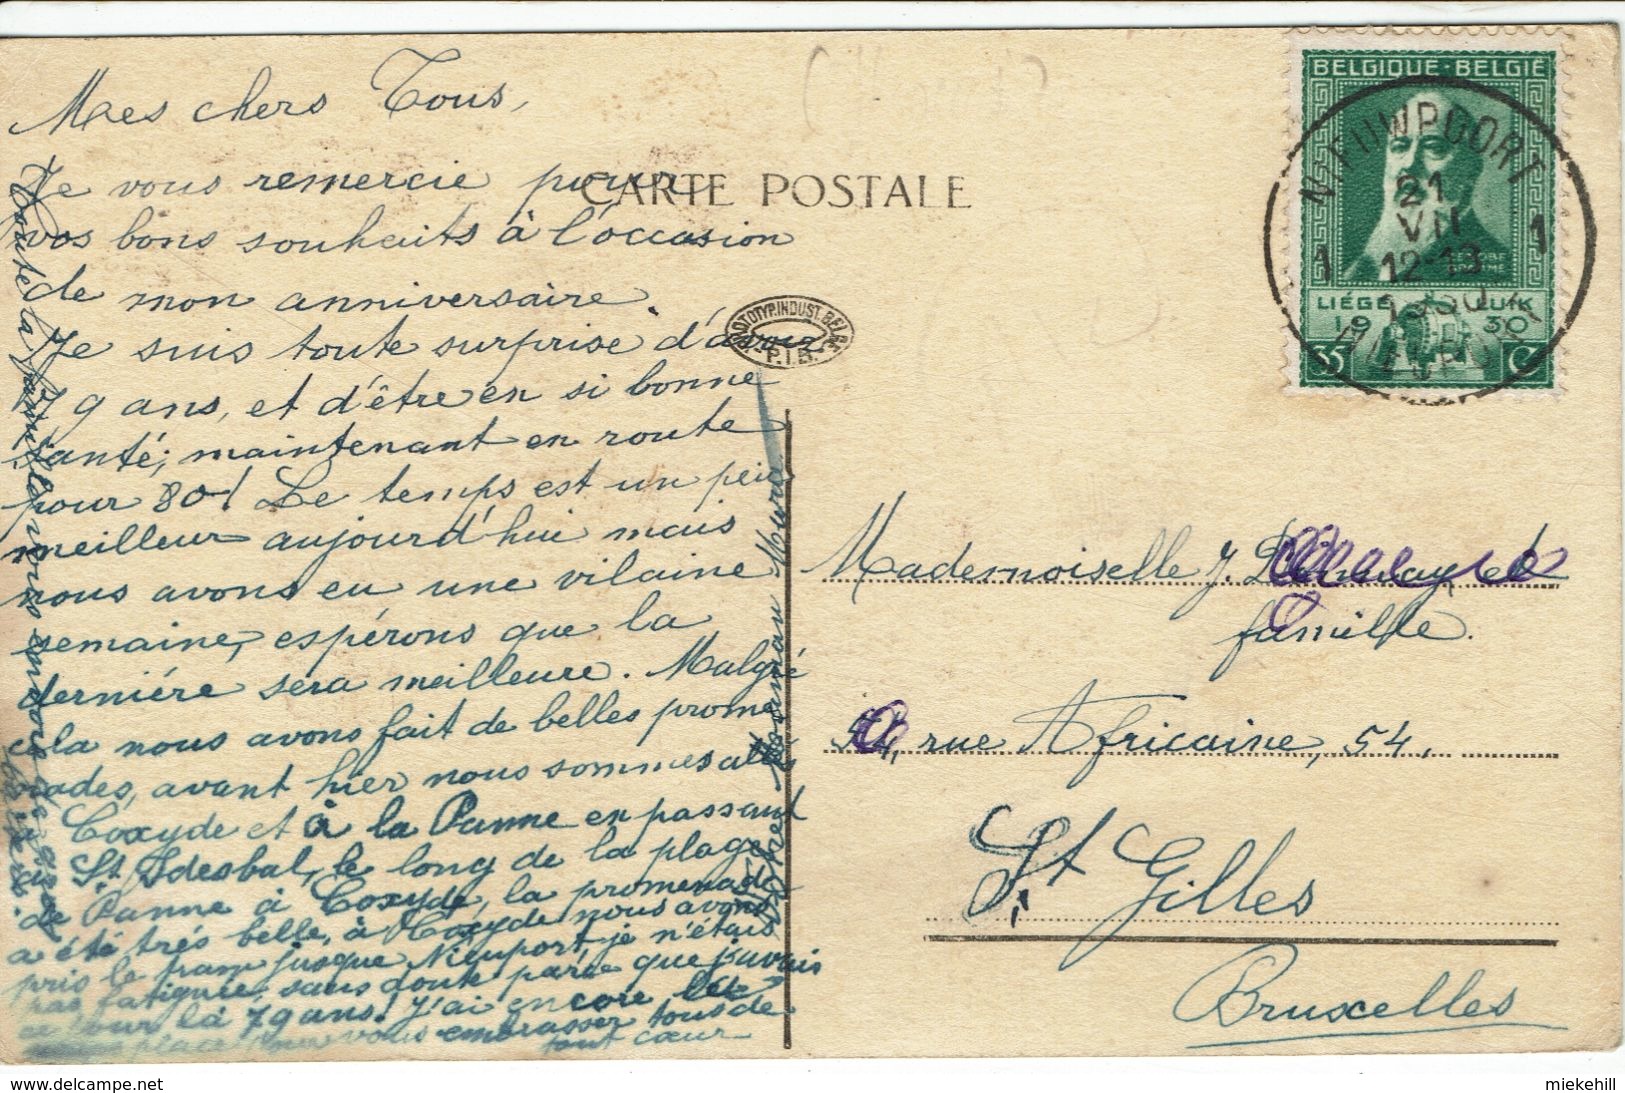 Mes chers Tous,
Je vous remercie pour
vos bons souhaits à l'occasion
de mon anniversaire.
Je suis toute surprise d'avoir
79 ans, et d'être en si bonne
santé; maintenant en route
pour 80! Le temps est un peu
meilleur aujourd'hui mais
nous avons eu une vilaine
semaine, espérons que la
derniére sera meilleure. Malgré
cela nous avons fait de belles prome
nades, avant hier nous sommes allés
à Coxyde et à la Panne en passant
à St Idesbal, le long de la plage
de Panne à Coxyde, la promenade
a été trés belle, à Coxyde nous avons
pris le tram jusque Nieuport, je n'étais
pas fatiguée, sans doute parce que j'avais
ce jour là 79 ans! J'ai encore
place pour vous embrasser tous de
tout cœur
Votre Maman Marie
Toute la famille vous envoie de gros
baisers.
CARTE POSTALE
PHOTOTYP. INDUST. BELGE
P.I.B.
BELGIQUE-BELGIË
LIÉGE LUIK
1930
35 C
NIEUWPOORT
21
VII
1 12-13 1
1930
NIEUPORT
Mademoiselle J. et
famille.
54, rue Africaine, 54.
St Gilles
Bruxelles
delcampe.net
miekehill